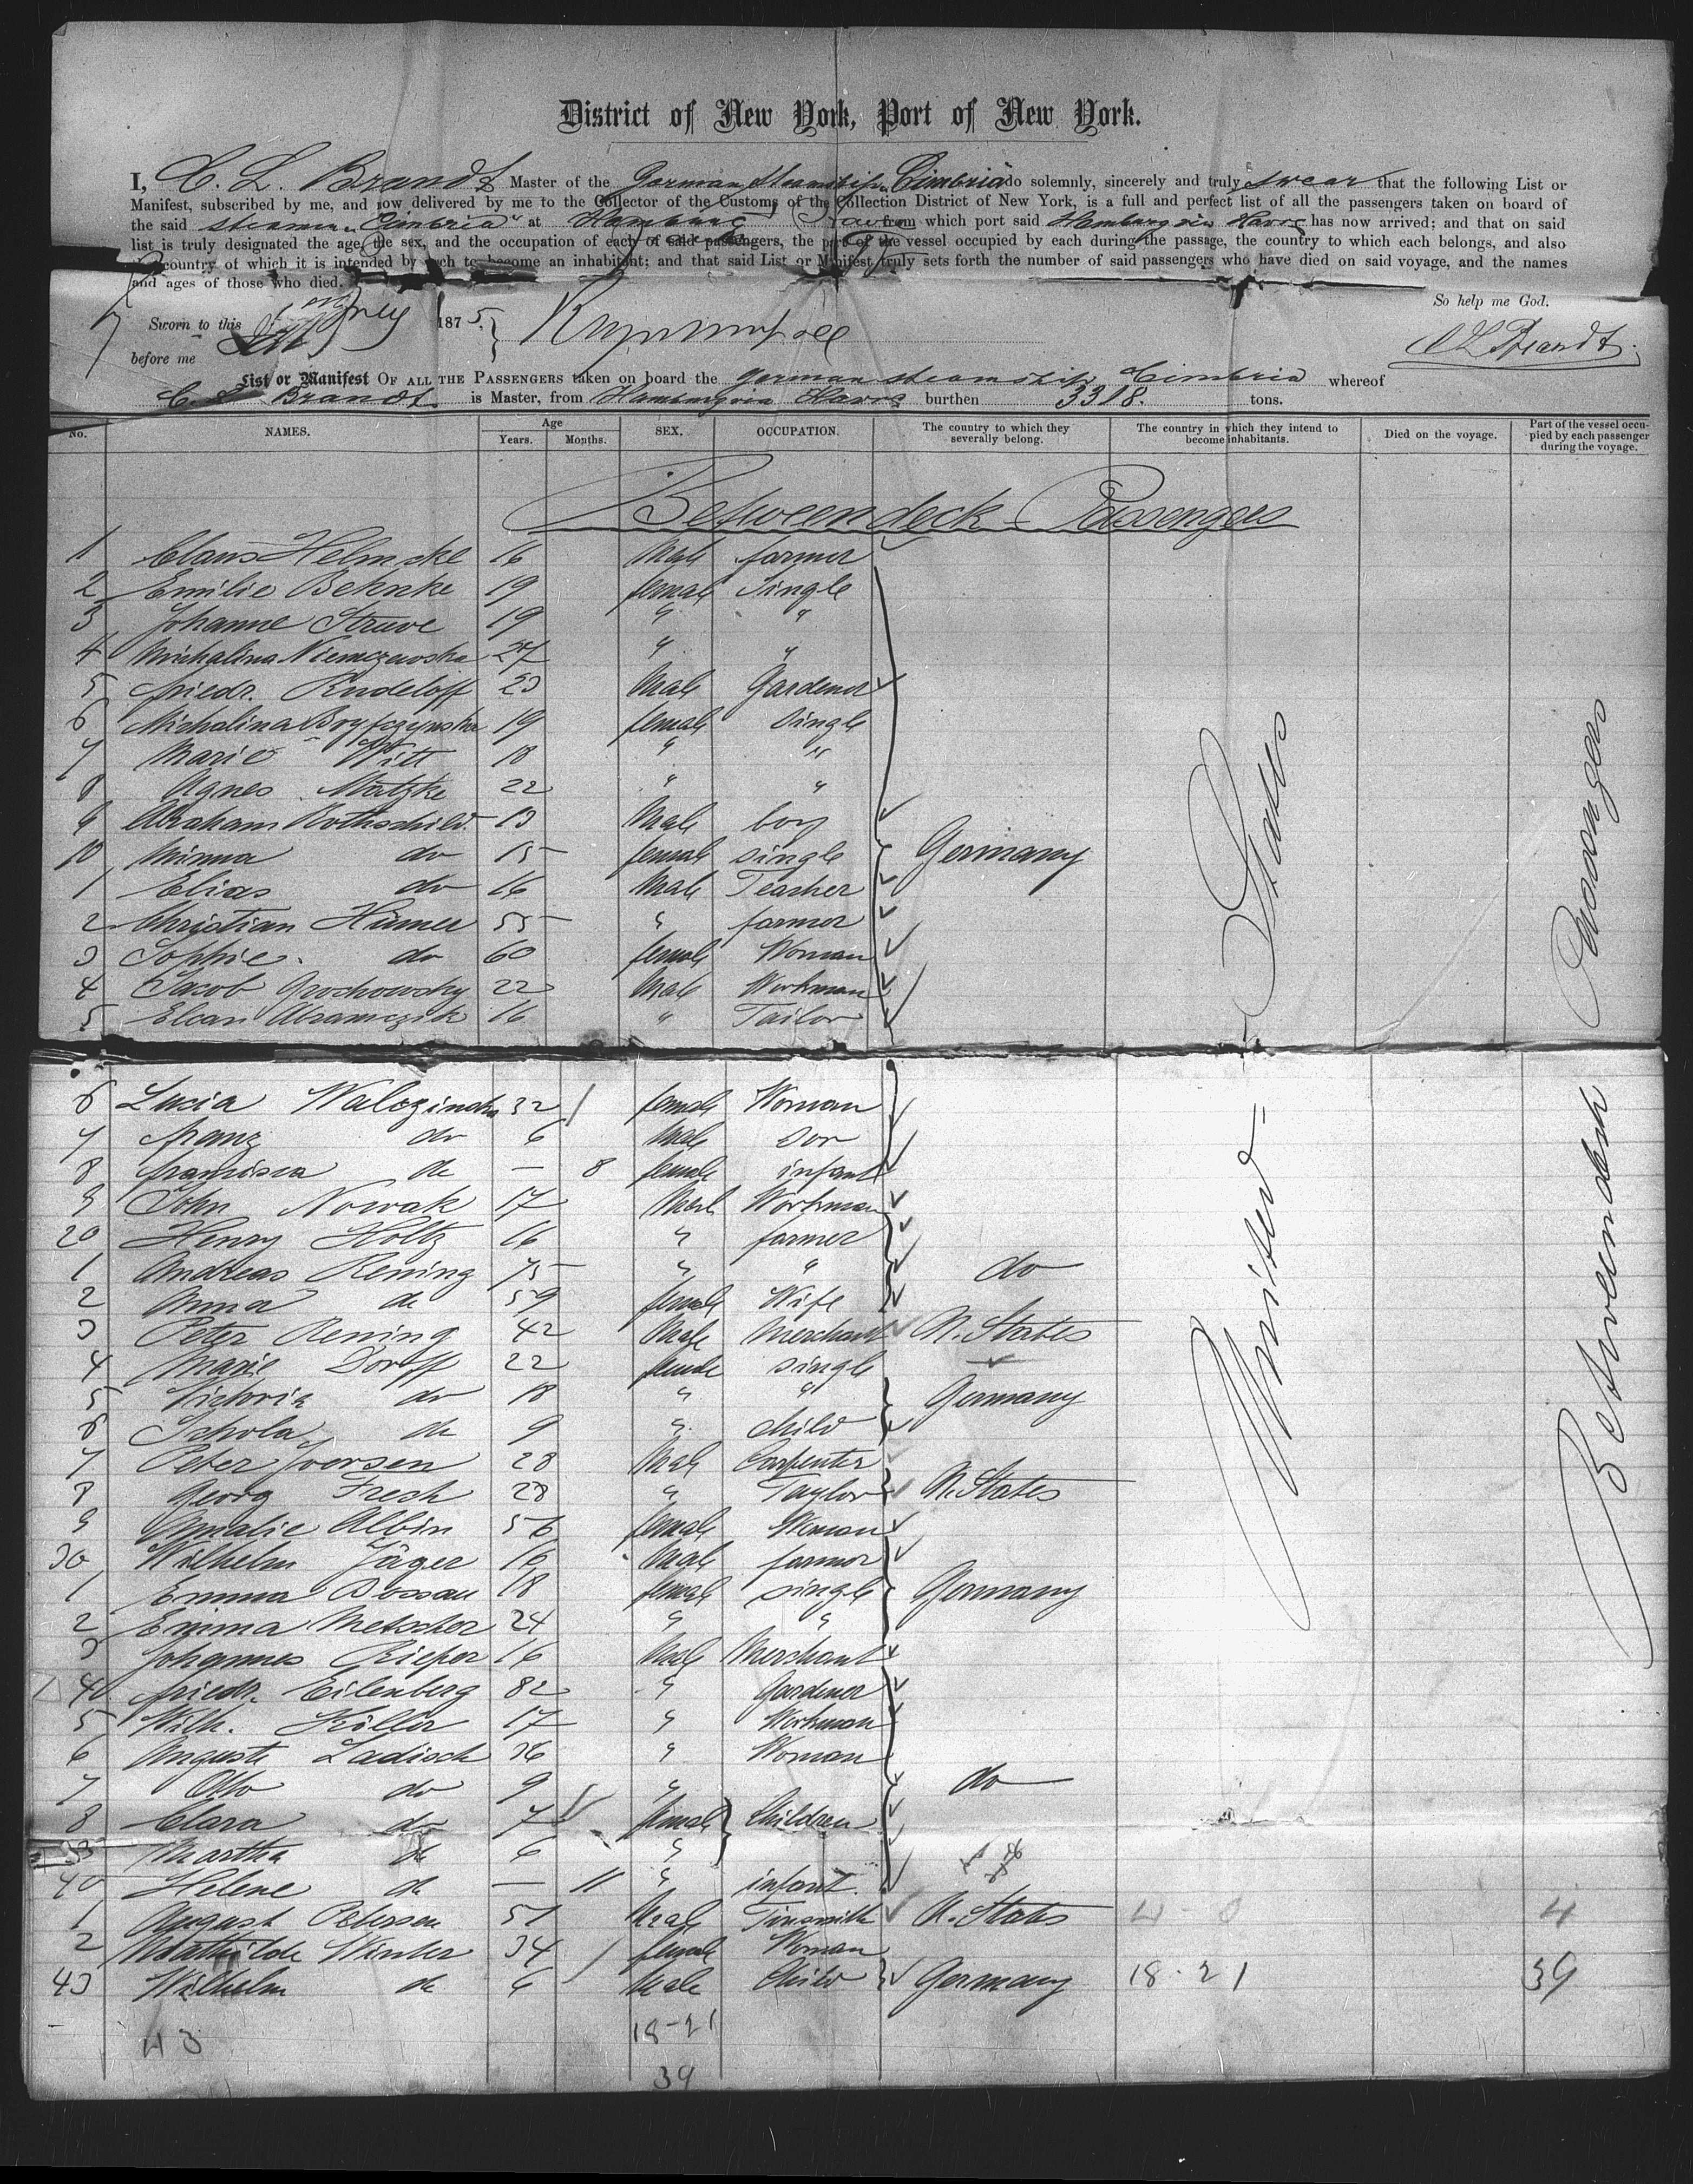 District of New York, Port of New York.
I, C. L. Brandt Master of the German Steamship "Cimbria" do solemnly, sincerely and truly swear that the following List or
Manifest, subscribed by me, and now delivered by me to the Collector of the Customs of the Collection District of New York, is a full and perfect list of all the passengers taken on board of
the said steamer "Cimbria" at Hamburg Havre from which port said Hamburg via Havre has now arrived; and that on said
list is truly designated the age, the sex, and the occupation of each of said passengers, the part of the vessel occupied by each during the passage, the country to which each belongs, and also
country of which it is intended by each to become an inhabitant; and that said List or Manifest truly sets forth the number of said passengers who have died on said voyage, and the names
and ages of those who died.
So help me God.
Sworn to this 1875.
before me
C L Brandt
List or Manifest OF ALL THE PASSENGERS taken on board the german steamship Cimbria whereof
C. L. Brandt is Master, from Hamburg via Havre burthen 3318. tons.
No. NAMES. Age Years. Months. SEX. OCCUPATION. The country to which they severally belong. The country in which they intend to become inhabitants. Died on the voyage. Part of the vessel occupied by each passenger during the voyage.
Betweendeck Passengers
1 Claus Helmcke 16 Male farmer
2 Emilie Behnke 19 female Single
3 Johanne Struve 19 " "
4 Michalina Niemczewska 27 " "
5 friedr. Rudeloff 23 Male Gardener
6 Michalina 19 female Single
7 Marie Witt 18 " "
8 Agnes Matzke 22 " "
9 Abraham Rothschild 13 Male boy
10 Minna do 15 female single Germany
1 Elias do 16 Male Teacher
2 Christian Hümer 55 " farmer
3 Sophie do 60 female Woman
4 Jacob Grochowsky 22 Male Workman
5 Abramczik 16 " Tailor
6 Lucia 32 female Woman
7 franz do 6 Male Son
8 francisca do — 8 female infant
9 John Nowak 17 Male Workman
20 Henry Holtz 16 " farmer
1 Andreas Rening 75 " " do
2 Anna do 59 female Wife
3 Peter Rening 42 Male Merchant U. States
4 Marie Dorff 22 female single
5 Victoria do 18 " " Germany
6 Schola do 9 " child
7 Peter Joersen 28 Male Carpenter
8 Georg Fresh 28 " Taylor U. States
9 Amalie Albin 56 female Woman
30 Wilhelm Jäger 16 Male farmer
1 Emma Dossau 18 female single Germany
2 Emma Metscher 24 " "
3 Johannes Rieper 16 Male Merchant
40 friedr. Eilenberg 82 " Gardener
5 Wilh. Killer 17 " Workman
6 Auguste Ladisch 36 " Woman
7 Otto do 9 " do
8 Clara do 7 female Children
Martha do 6 "
40 Helene do — 11 " infant
1 August Petersen 51 Male Tinsmith U. States 4 - 0 4
2 Mathilde Winter 34 female Woman
43 Wilhelm do 6 Male Child Germany 18 - 21 39
43 18-21
39
United States
Betweendeck Passengers